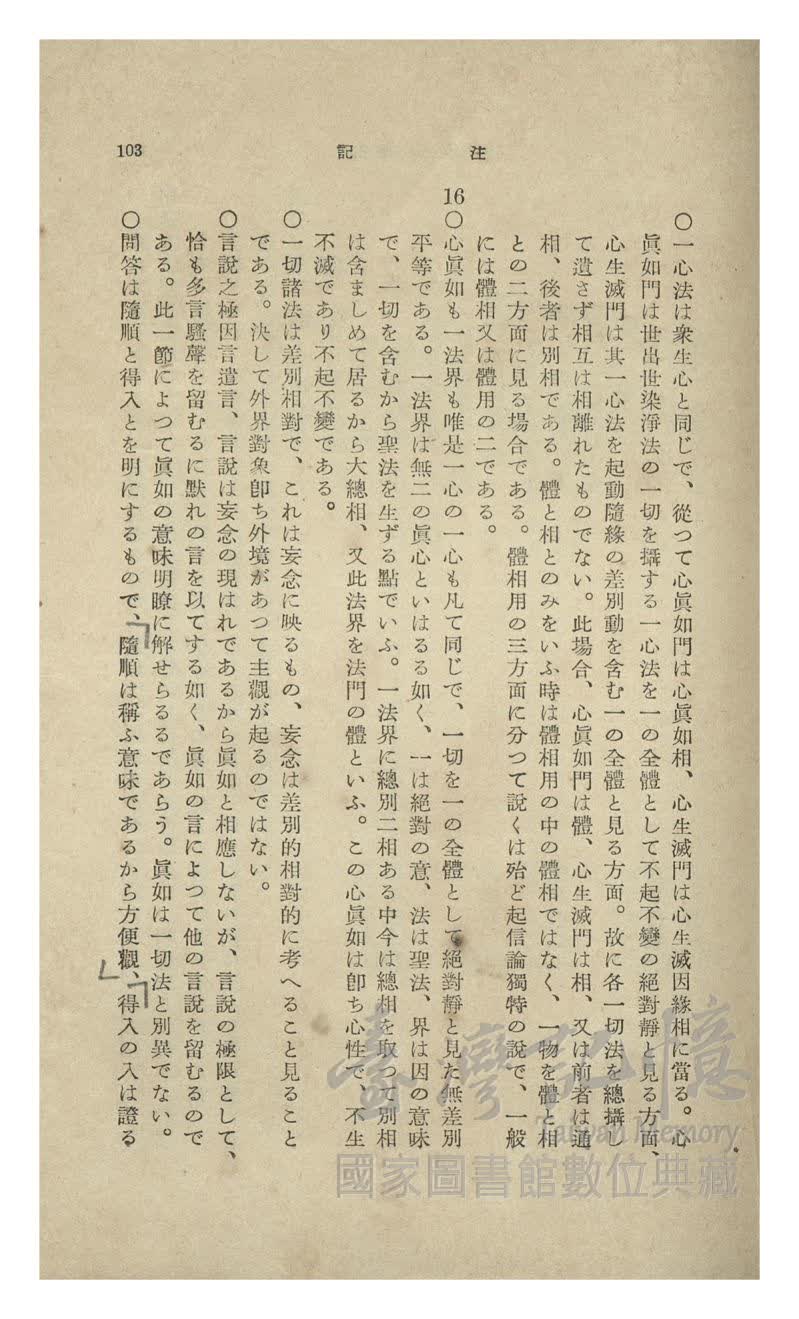 注記
103
○一心法は衆生心と同じで、從つて心眞如門は心眞如相、心生滅門は心生滅因緣相に當る。心
眞如門は世出世染淨法の一切を攝する一心法を一の全體として不起不變の絕對靜と見る方面、
心生滅門は其一心法を起動隨緣の差別動を含む一の全體と見る方面。故に各一切法を總攝し
て遺さず相互は相離れたものでない。此場合、心眞如門は體、心生滅門は相、又は前者は通
相、後者は別相である。體と相とのみをいふ時は體相用の中の體相ではなく、一物を體と相
との二方面に見る場合である。體相用の三方面に分つて說くは殆ど起信論獨特の說で、一般
には體相又は體用の二である。
16○心眞如も一法界も唯是一心の一心も凡て同じで、一切を一の全體として絕對靜と見た無差別
平等である。一法界は無二の眞心といはるる如く、一は絕對の意、法は聖法、界は因の意味
で、一切を含むから聖法を生ずる點でいふ。一法界に總別二相ある中今は總相を取つて別相
は含ましめて居るから大總相、又此法界を法門の體といふ。この心眞如は卽ち心性で、不生
不滅であり不起不變である。
○一切諸法は差別相對で、これは妄念に映るもの、妄念は差別的相對的に考へること見ること
である。決して外界對象卽ち外境があつて主觀が起るのではない。
○言說之極因言遣言、言說は妄念の現はれであるから眞如と相應しないが、言說の極限として、
恰も多言騷聲を留むるに默れの言を以てする如く、眞如の言によつて他の言說を留むるので
ある。此一節によつて眞如の意味明瞭に解せらるるであらう。眞如は一切法と別異でない。
○問答は隨順と得入とを明にするもので、隨順は稱ふ意味であるから方便觀、得入の入は證る
臺灣記憶
Taiwan Memory
國家圖書館數位典藏